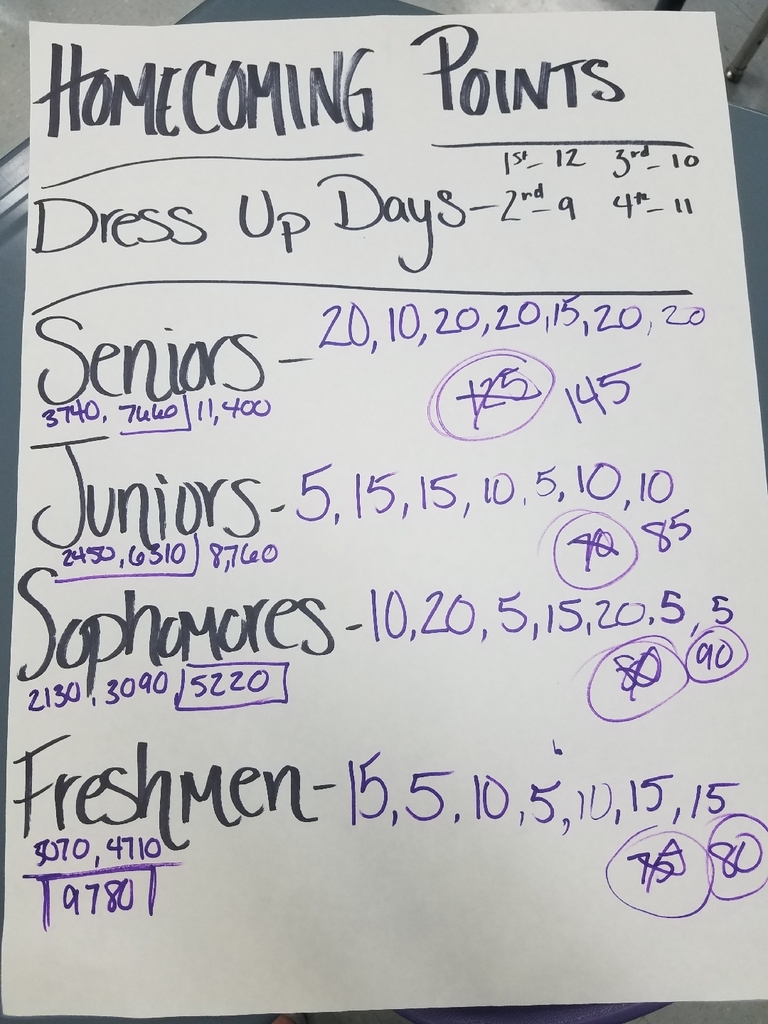 HOMECOMING POINTS
1st- 12 3rd- 10
Dress Up Days- 2nd- 9 4th- 11
Seniors - 20, 10, 20, 20, 15, 20, 20
3740, 7660 11,400
125 145
Juniors - 5, 15, 15, 10, 5, 10, 10
2450, 6310 8,760
70 85
Sophomores - 10, 20, 5, 15, 20, 5, 5
2130, 3090 5220
80 90
Freshmen - 15, 5, 10, 5, 10, 15, 15
5070, 4710
80
9780